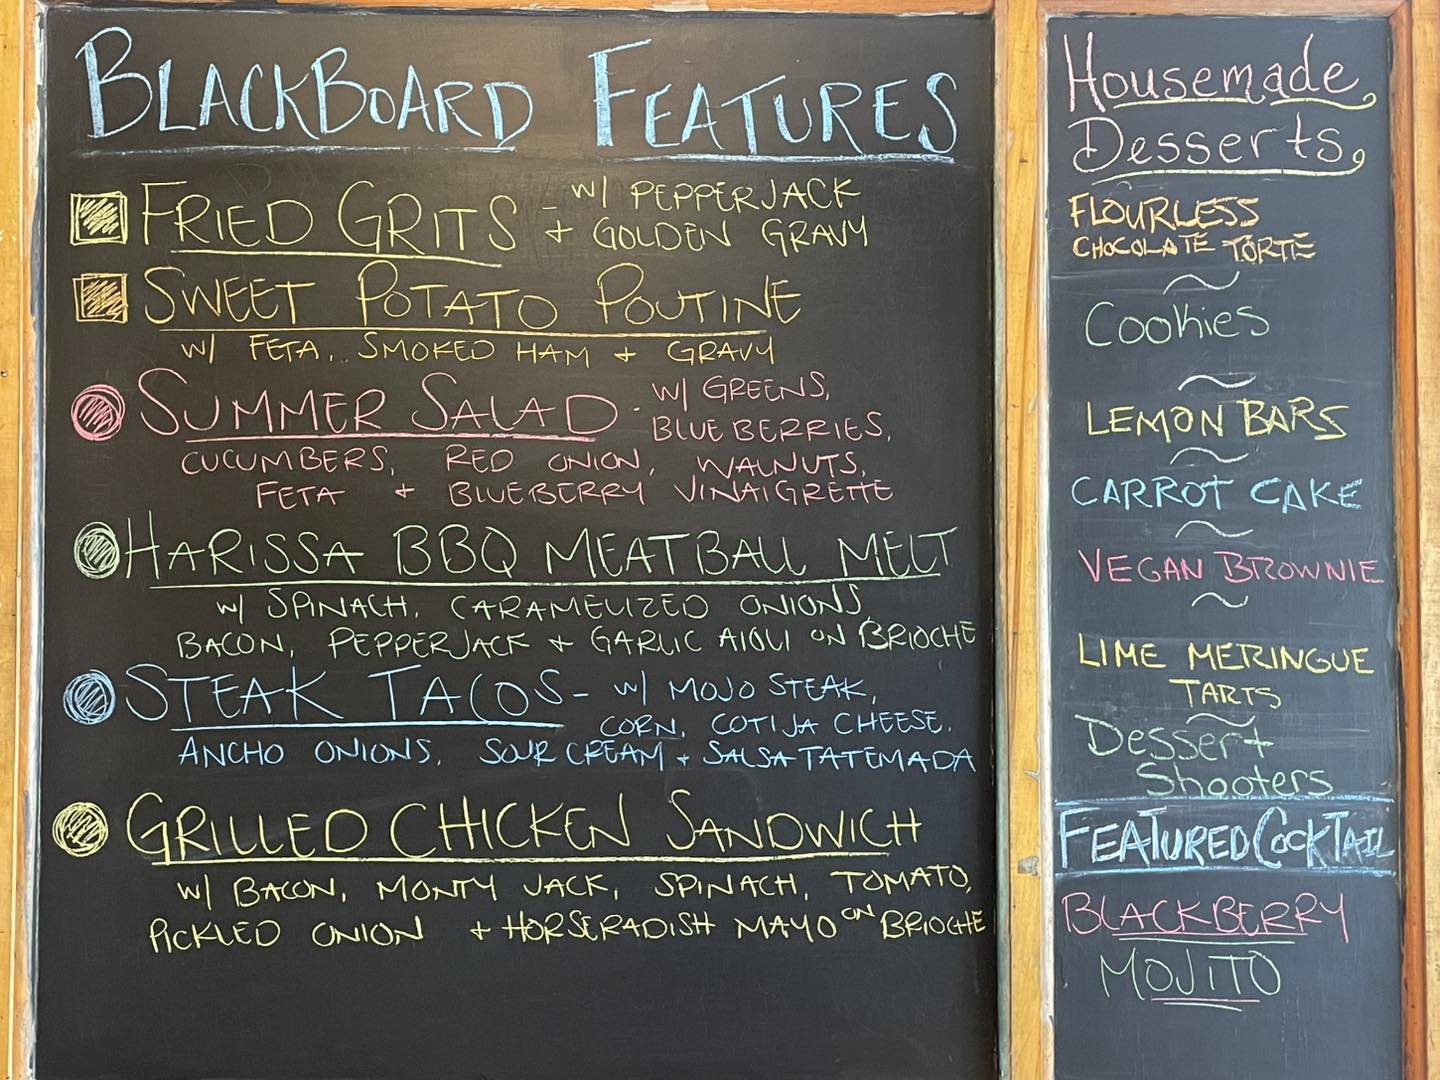 BLACKBOARD FEATURES
FRIED GRITS - W/ PEPPERJACK
+ GOLDEN GRAVY
SWEET POTATO POUTINE
W/ FETA, SMOKED HAM + GRAVY
SUMMER SALAD - W/ GREENS,
BLUEBERRIES,
CUCUMBERS, RED ONION, WALNUTS,
FETA + BLUEBERRY VINAIGRETTE
HARISSA BBQ MEATBALL MELT
W/ SPINACH, CARAMELIZED ONIONS,
BACON, PEPPERJACK + GARLIC AIOLI ON BRIOCHE
STEAK TACOS - W/ MOJO STEAK,
CORN, COTIJA CHEESE,
ANCHO ONIONS, SOUR CREAM + SALSA TATEMADA
GRILLED CHICKEN SANDWICH
W/ BACON, MONTY JACK, SPINACH, TOMATO,
PICKLED ONION + HORSERADISH MAYO ON BRIOCHE
Housemade
Desserts
FLOURLESS
CHOCOLATE TORTE
Cookies
LEMON BARS
CARROT CAKE
VEGAN BROWNIE
LIME MERINGUE
TARTS
Dessert
Shooters
FEATURED COCKTAIL
BLACKBERRY
MOJITO